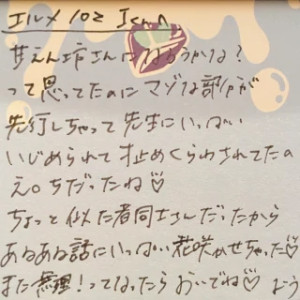 エルメ 102
甘えん坊さんになろうかな？
って思ってたのにマゾな部分が
先行しちゃって先生にいっぱい
いじめられて止めくらわされてたの
え。ちだったね♡
ちょっと似た者同士さんだったから
あるある話にいっぱい花咲かせちゃった♡
また無理！ってなったらおいでね♡ よう